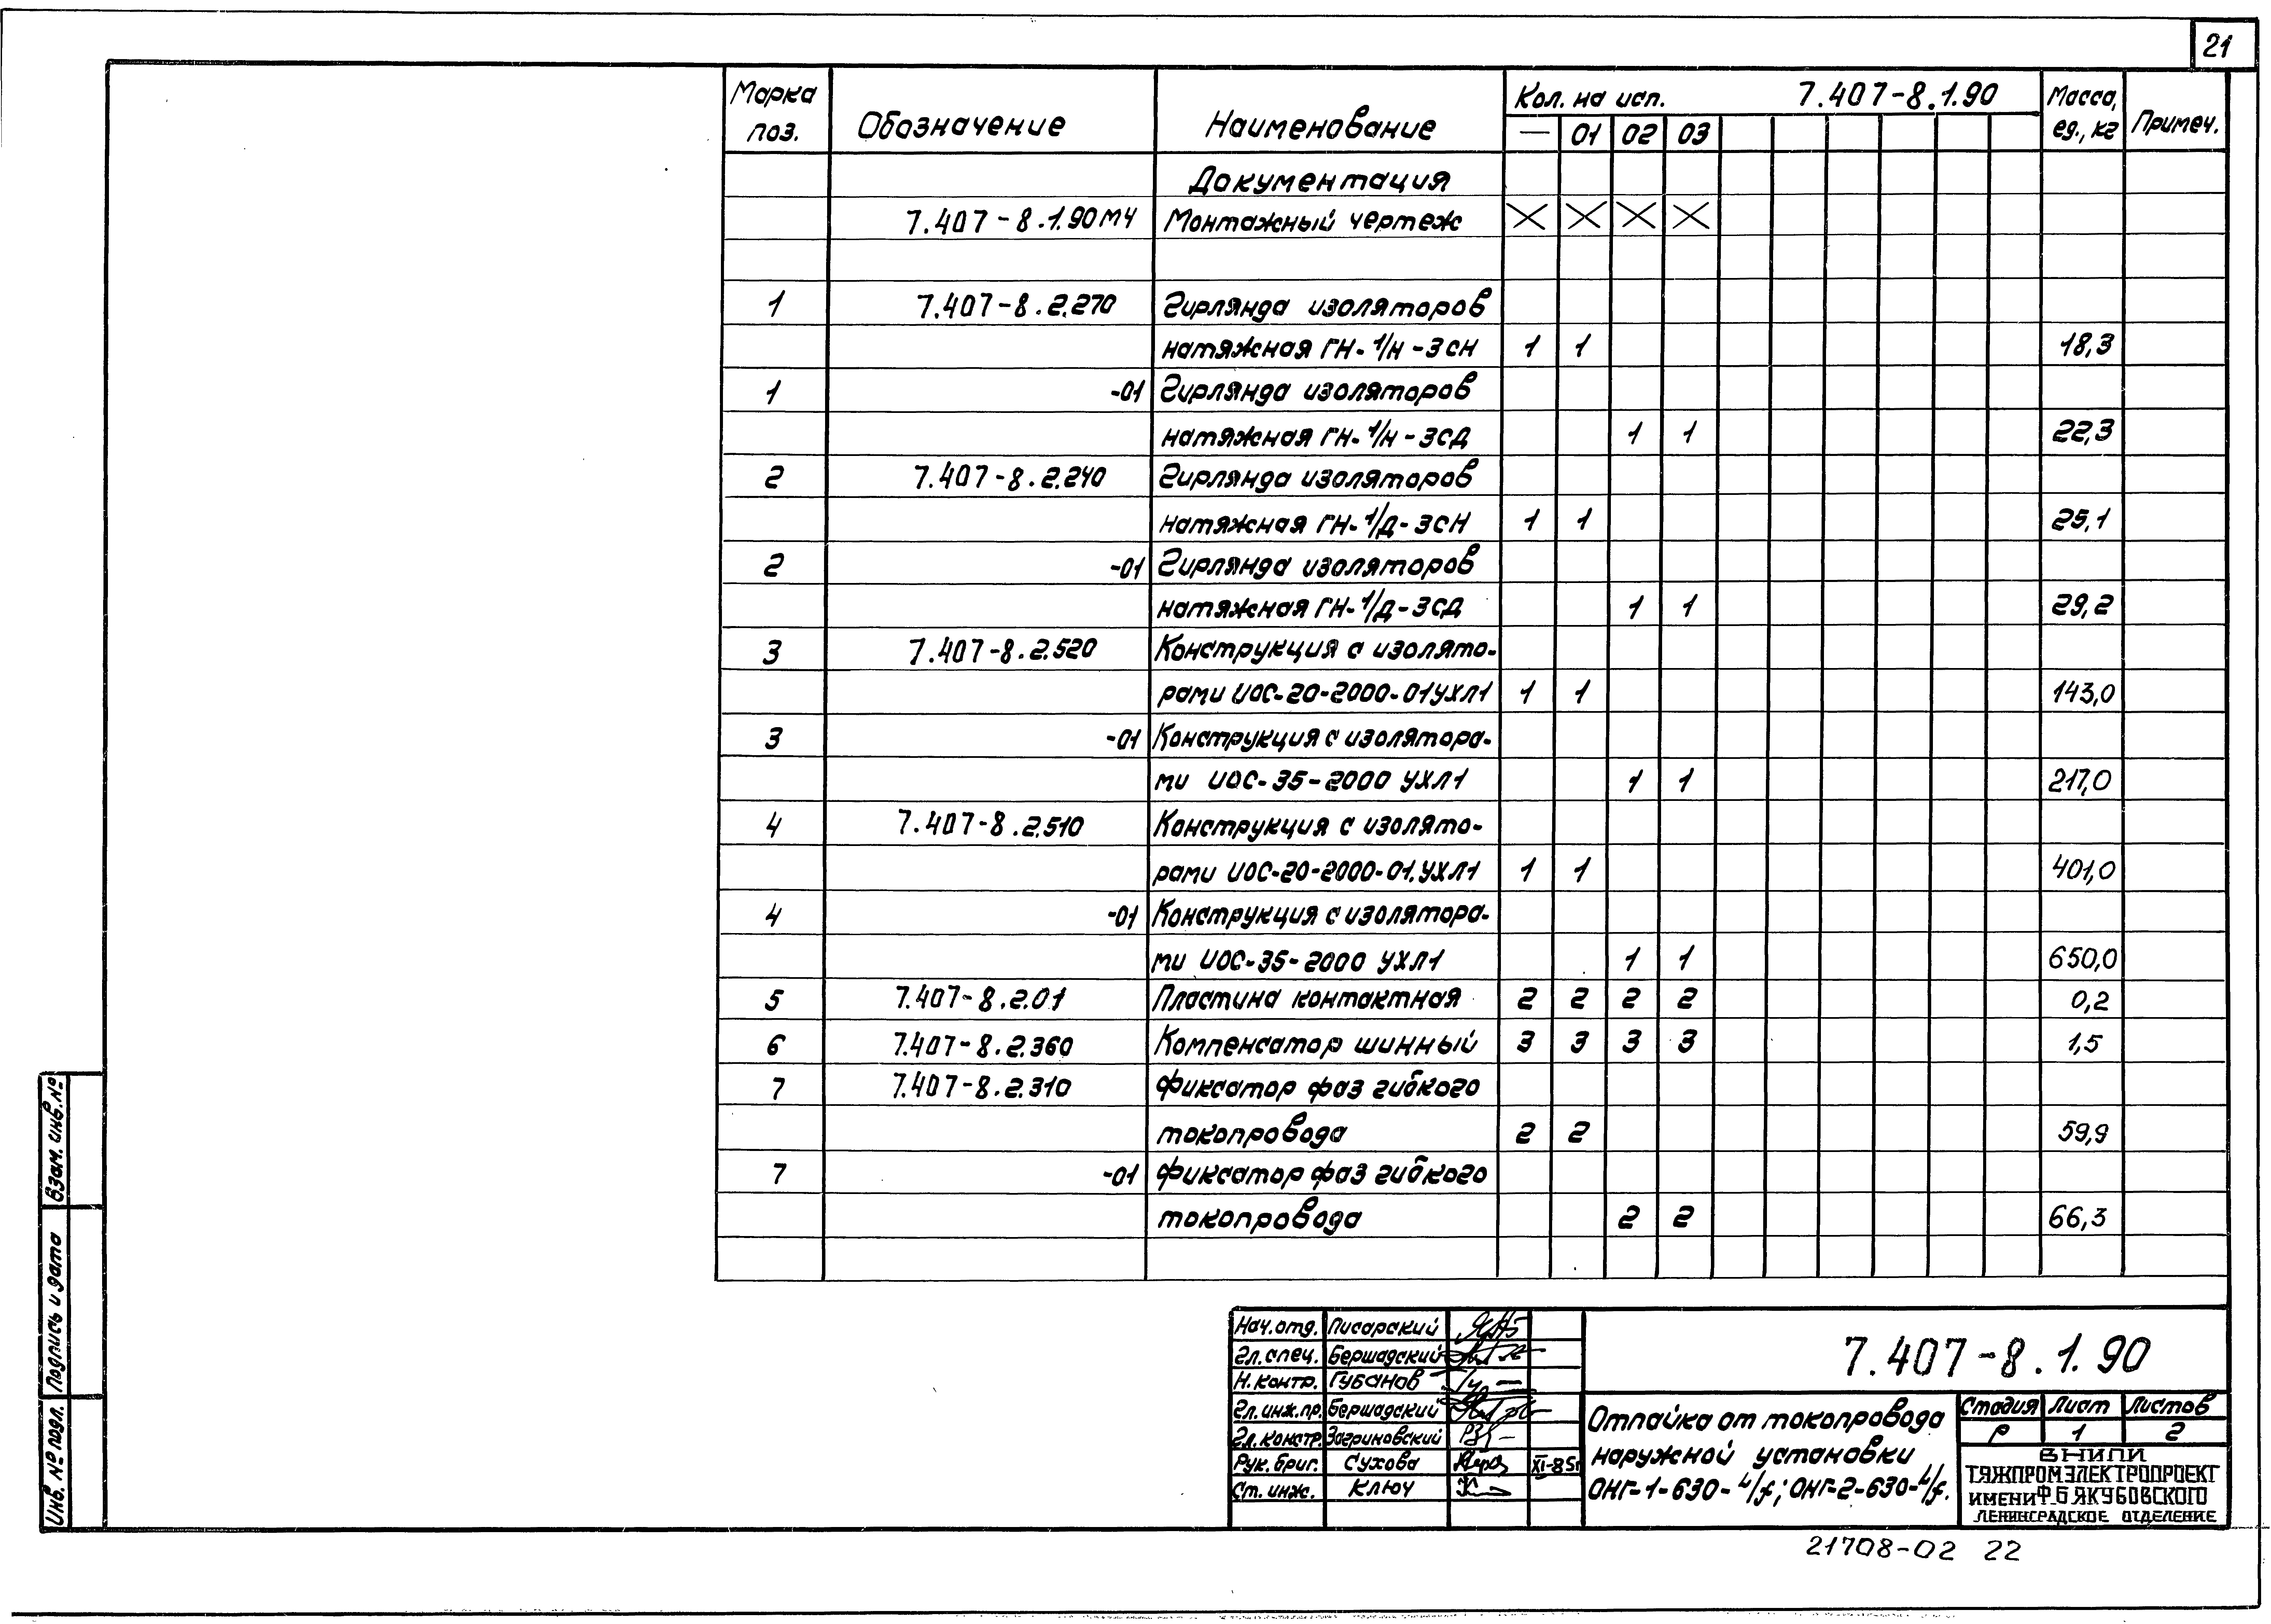 21
Марка поз. Обозначение Наименование Кол. на исп. 7.407-8.1.90 Масса, ед., кг Примеч.
— 01 02 03
Документация
7.407-8.1.90МЧ Монтажный чертеж
1 7.407-8.2.270 Гирлянда изоляторов
натяжная ГН-1/Н-3СН 1 1 18,3
1 -01 Гирлянда изоляторов
натяжная ГН-1/Н-3СД 1 1 22,3
2 7.407-8.2.240 Гирлянда изоляторов
натяжная ГН-1/Д-3СН 1 1 25,1
2 -01 Гирлянда изоляторов
натяжная ГН-1/Д-3СД 1 1 29,2
3 7.407-8.2.520 Конструкция с изолято-
рами ИОС-20-2000-01УХЛ1 1 1 143,0
3 -01 Конструкция с изолятора-
ми ИОС-35-2000 УХЛ1 1 1 217,0
4 7.407-8.2.510 Конструкция с изолято-
рами ИОС-20-2000-01.УХЛ1 1 1 401,0
4 -01 Конструкция с изолятора-
ми ИОС-35-2000 УХЛ1 1 1 650,0
5 7.407-8.2.01 Пластина контактная 2 2 2 2 0,2
6 7.407-8.2.360 Компенсатор шинный 3 3 3 3 1,5
7 7.407-8.2.310 Фиксатор фаз гибкого
токопровода 2 2 59,9
7 -01 Фиксатор фаз гибкого
токопровода 2 2 66,3
Взам. инв. №
Подпись и дата
Инв. № подл.
Нач. отд. Писарский
Гл. спец. Бершадский
Н. контр. Губанов
Гл. инж. пр. Бершадский
Гл. констр. Загриновский
Рук. бриг. Сухова XI-85г
Ст. инж. Ключ
7.407-8.1.90
Отпайка от токопровода
наружной установки
ОНГ-1-630-И/f; ОНГ-2-630-И/f.
Стадия Лист Листов
Р 1 2
ВНИПИ
ТЯЖПРОМЭЛЕКТРОПРОЕКТ
ИМЕНИ Ф.Б.ЯКУБОВСКОГО
ЛЕНИНГРАДСКОЕ ОТДЕЛЕНИЕ
21708-02 22